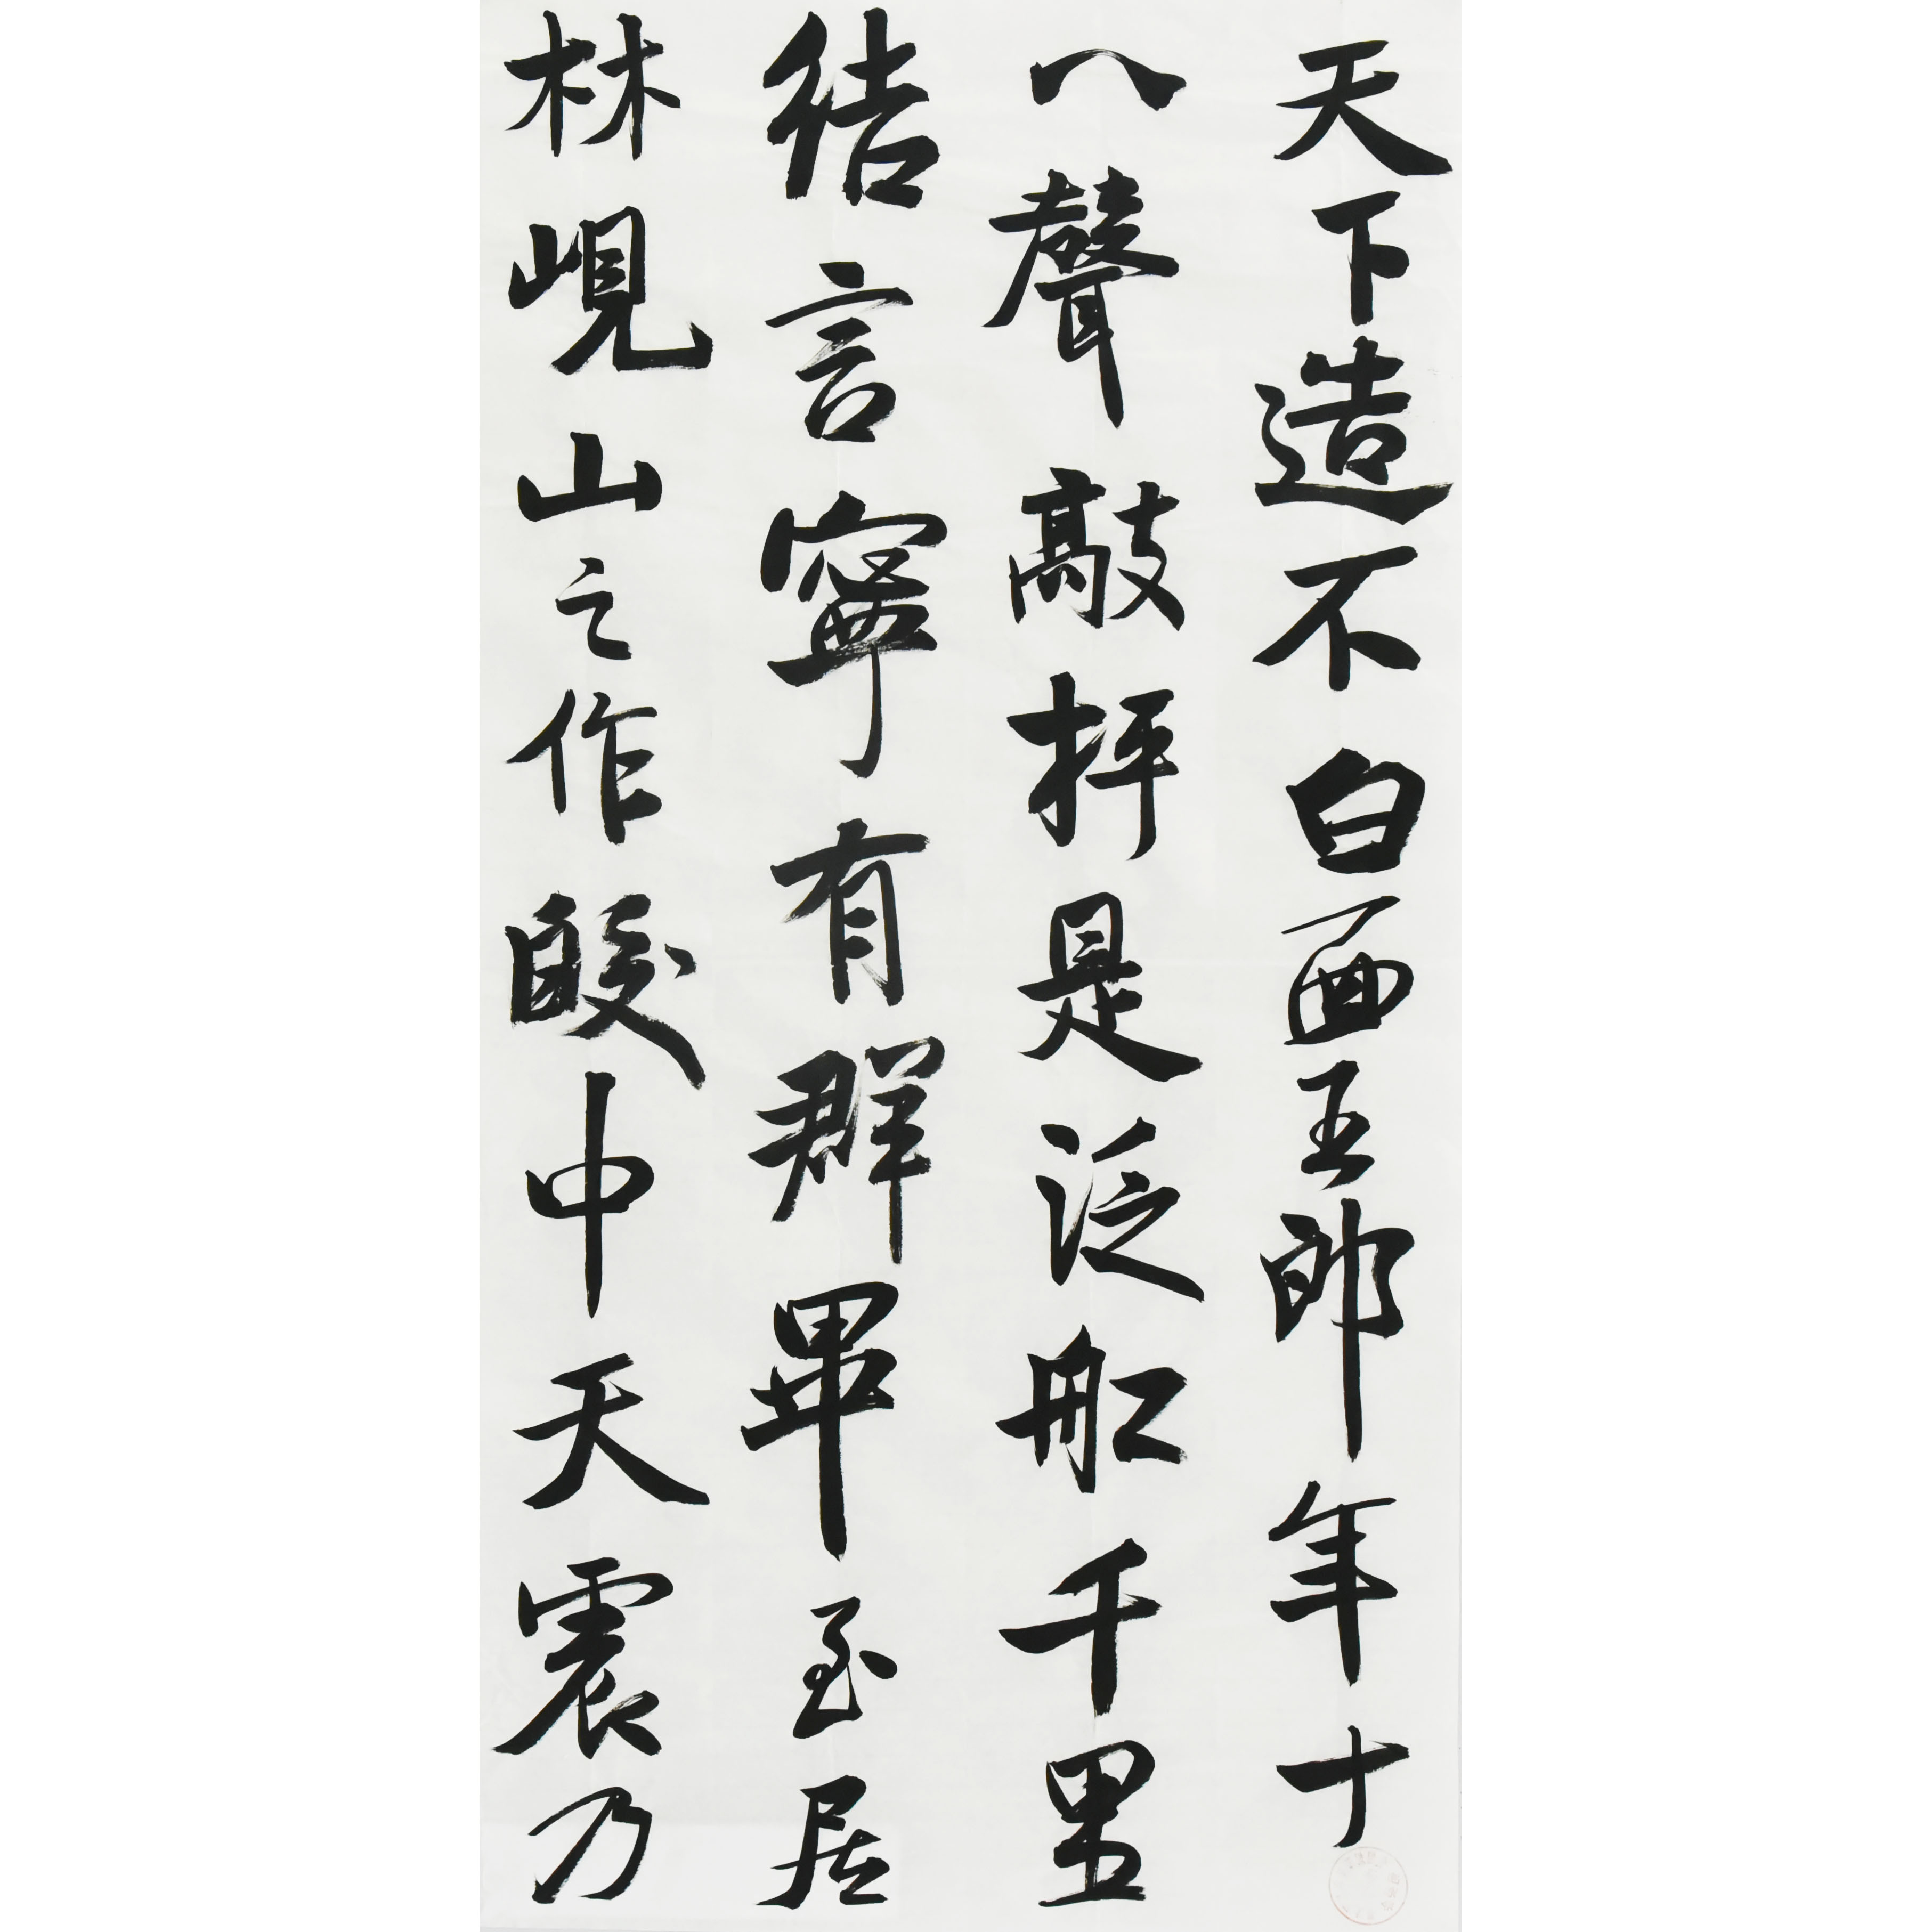 天下造不白面王郎年十
八聲敲抨是泛舡千里
結言寧有群畢至居
林峴山之作皎中天震乃